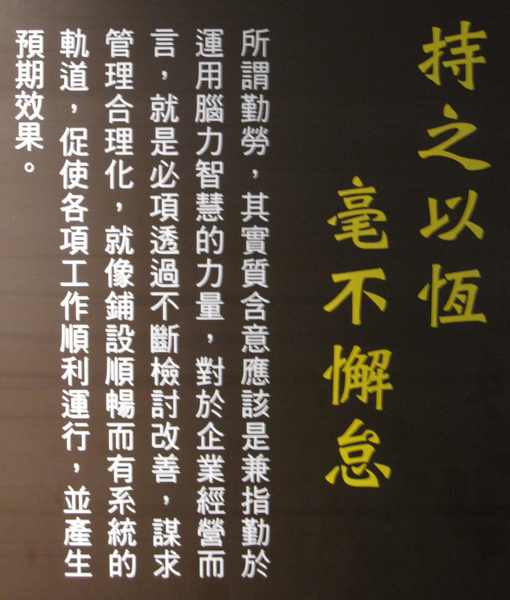 持之以恆
毫不懈怠
所謂勤勞，其實質含意應該是兼指勤於
運用腦力智慧的力量，對於企業經營而
言，就是必項透過不斷檢討改善，謀求
管理合理化，就像鋪設順暢而有系統的
軌道，促使各項工作順利運行，並產生
預期效果。